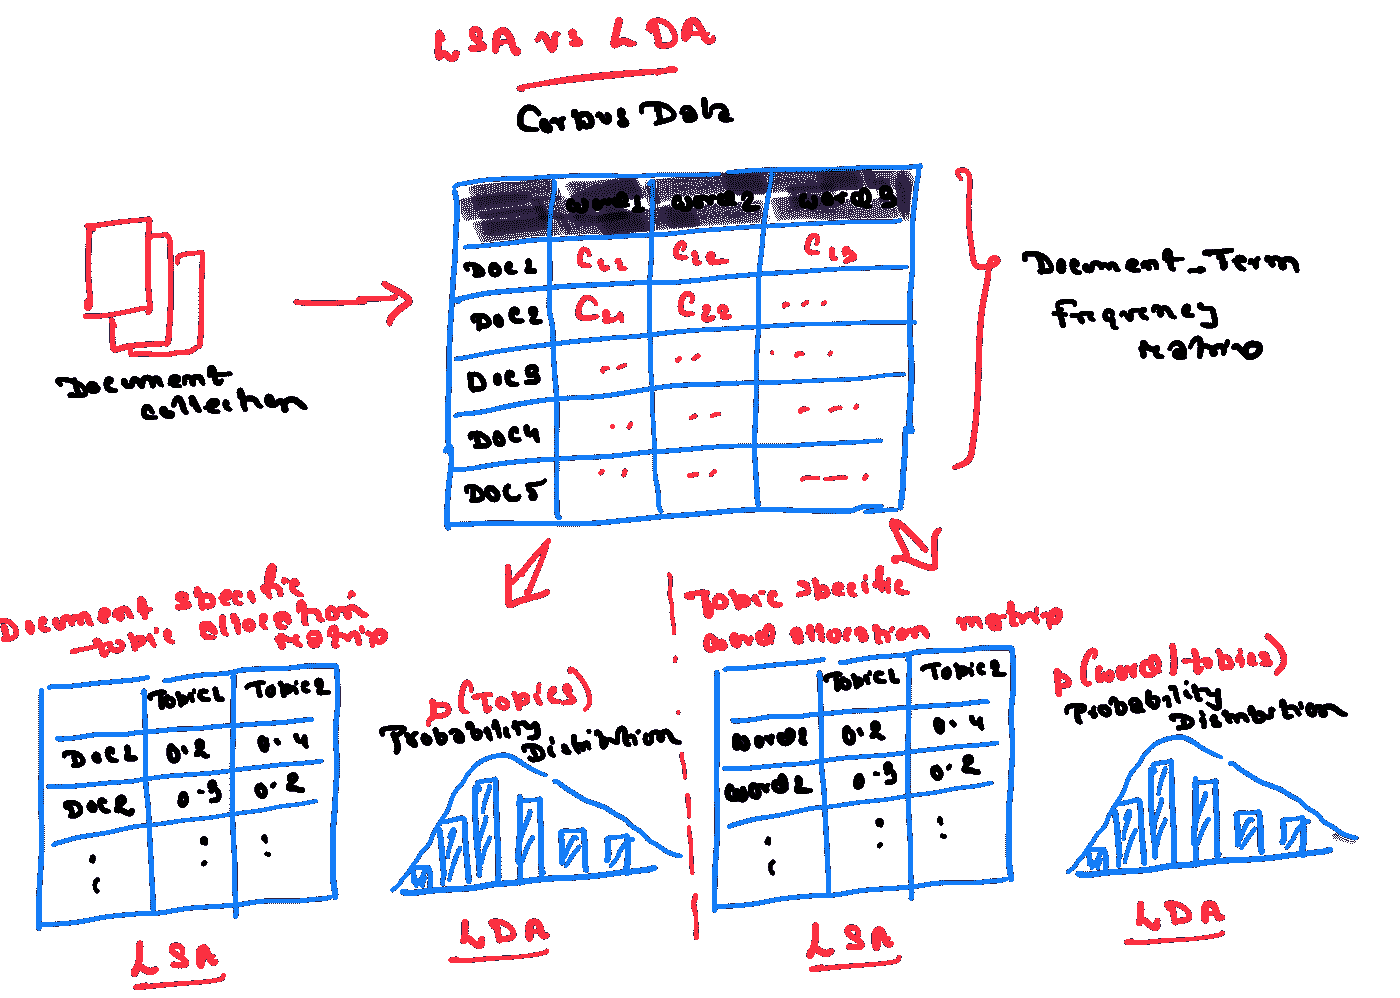 LSA vs LDA
Corpus Data
word1 word2 word3
DOC1 C11 C12 C13
DOC2 C21 C22 ...
DOC3 .. .. ...
DOC4 .. .. ...
DOC5 .. .. ....
Document
collection
Document-Term
frequency
matrix
Document specific
topic allocation
matrix
Topic1 Topic2
DOC1 0.2 0.4
DOC2 0.3 0.2
LSA
p(Topics)
Probability
Distribution
LDA
Topic specific
word allocation matrix
Topic1 Topic2
word1 0.2 0.4
word2 0.3 0.2
LSA
p(word/topics)
Probability
Distribution
LDA